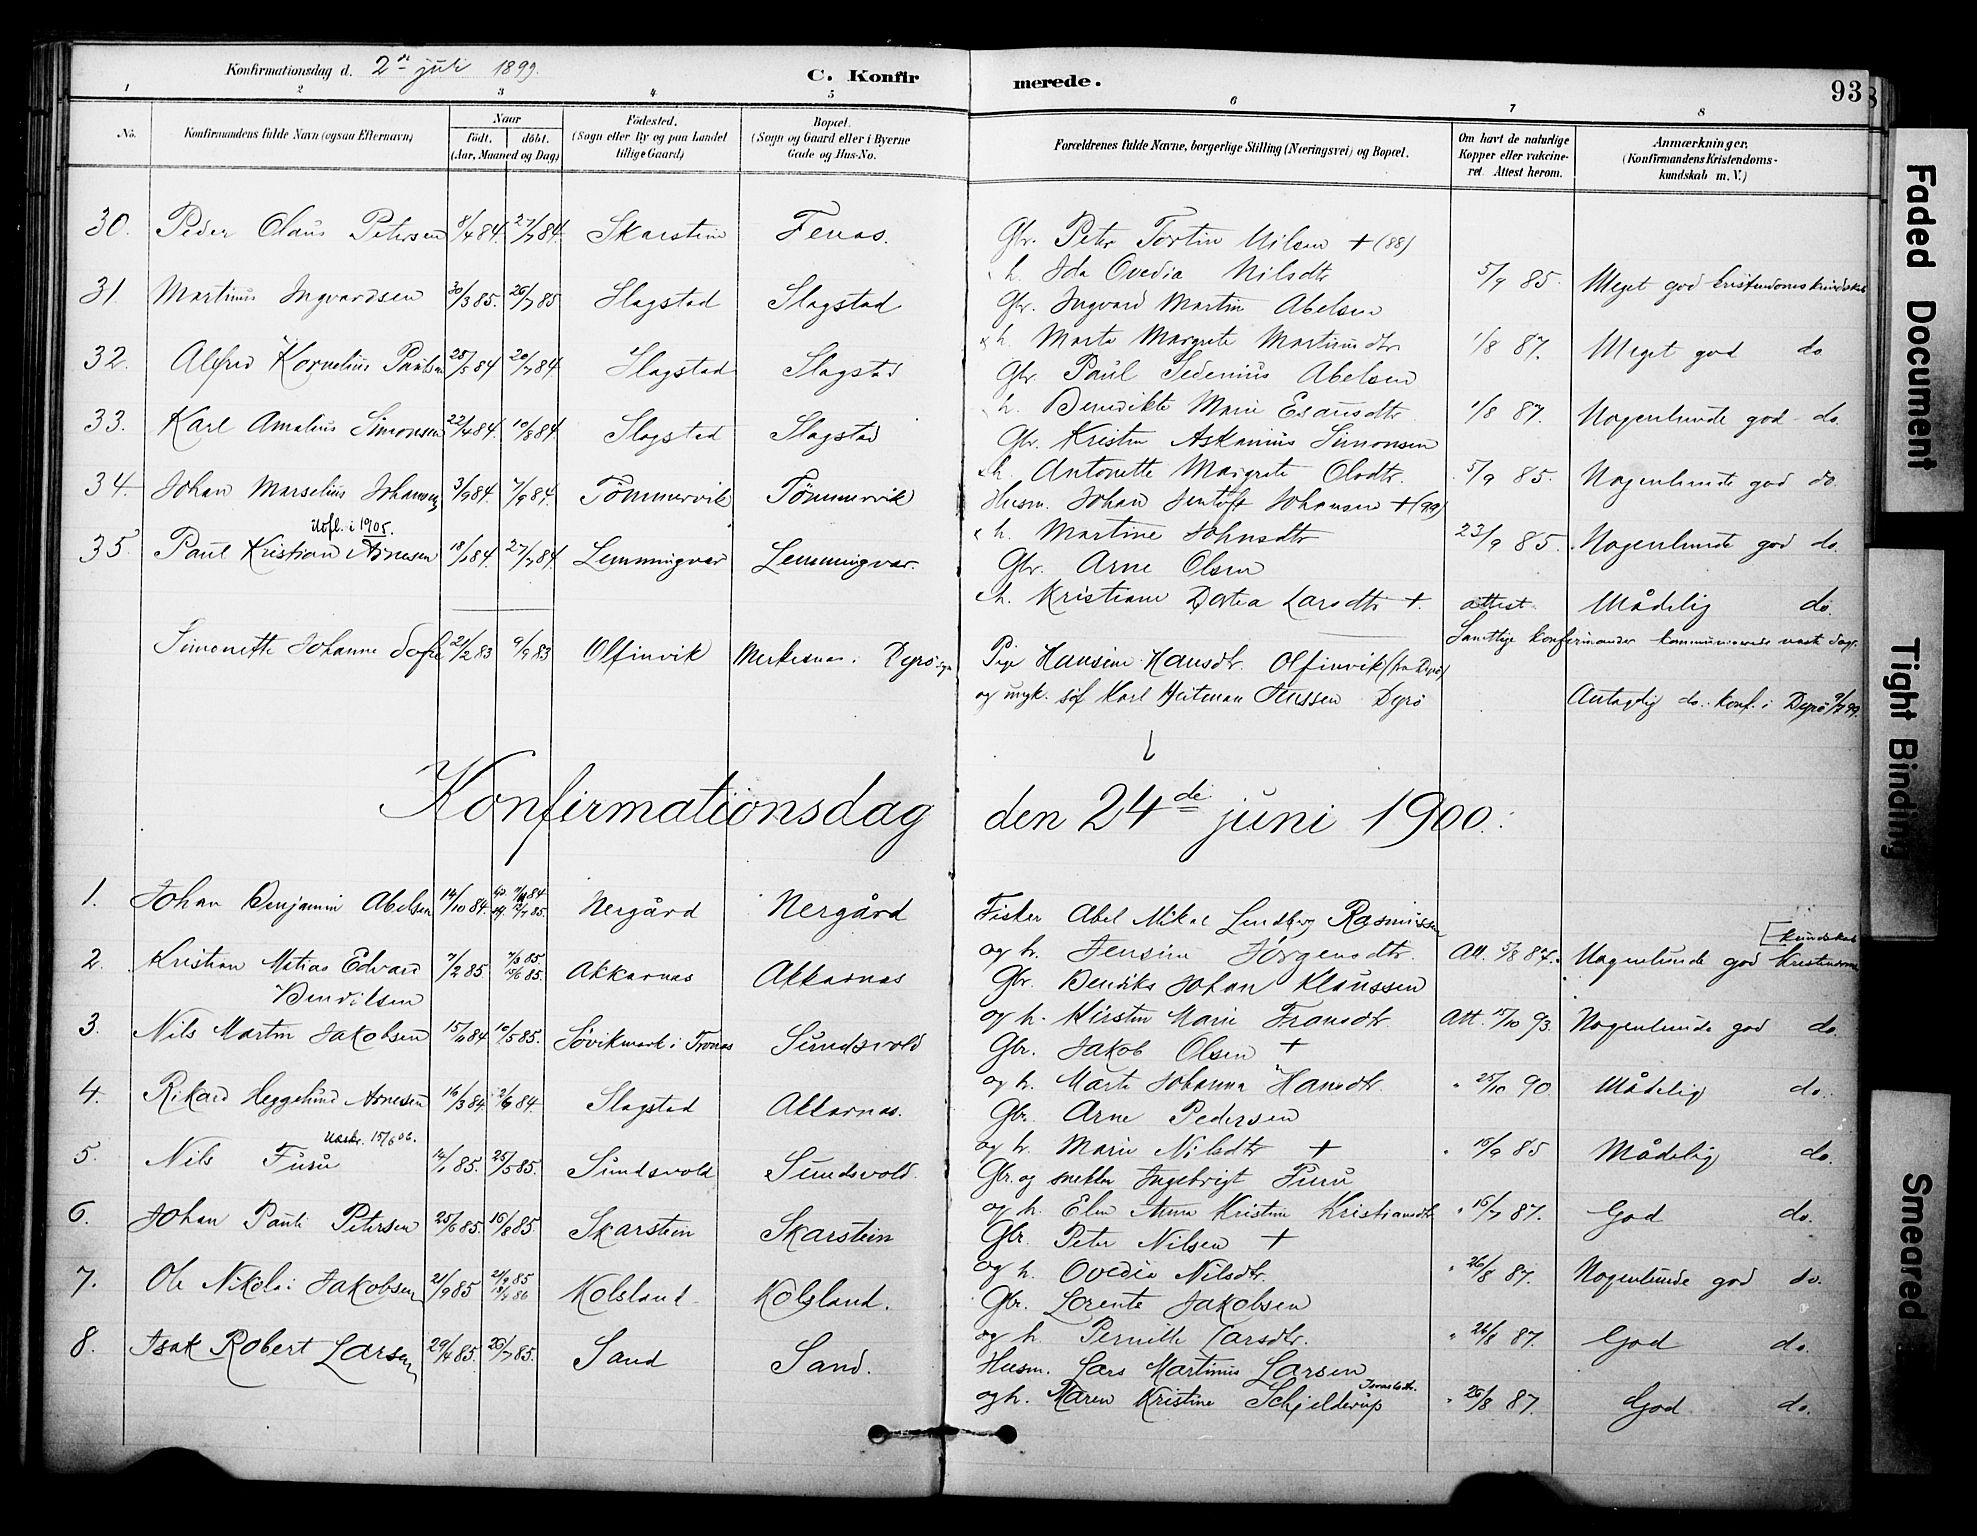 Konfirmationsdag d. 2de juli 1899.
C. Konfirmerede.
93
1 2 3 4 5 6 7 8
No.
Konfirmandens fulde Navn (ogsaa Efternavn)
Naar
født. døbt.
(Aar, Maaned og Dag)
Fødested.
(Sogn eller By og paa Landet
tillige Gaard)
Bopæl.
(Sogn og Gaard eller i Byerne
Gade og Hus-No.
Forældrenes fulde Navne, borgerlige Stilling (Næringsvei) og Bopæl.
Om havt de naturlige
Kopper eller vakcine-
ret. Attest herom.
Anmærkninger.
(Konfirmandens Kristendoms-
kundskab m. V.)
30. Peder Olaus Petersen 8/4 84. 27/7 84. Skarstein Fenes. Gbr. Peter Tortin Nilsen + (88)
h. Ida Ovedia Nilsdtr 5/9 85. Meget god kristendomskundskab
31. Martinus Ingvardsen 30/3 85. 26/7 85 Slagstad Slagstad Gbr. Ingvard Martin Abelsen
h. Marta Margrete Martinusdtr 1/8 87. Meget god do
32. Alfred Kornelius Paulsen 25/5 84 20/7 84 Slagstad Slagstad Gbr. Paul Sedenius Abelsen
h. Benedikte Marie Esausdtr. 1/8 87. Nogenlunde god do.
33. Karl Amalius Simonsen 22/4 84. 10/8 84 Slagstad Slagstad Gbr. Kristen Askanius Simonsen
h. Antonette Margrete Olsdtr. 5/9 85. Nogenlunde god do.
34. Johan Marselius Johansen 3/9 84. 7/9 84. Tømmervik Tømmervik Husm. Johan Jentoft Johansen + (99)
h. Martine Johnsdtr 23/9 85. Nogenlunde god do.
Udfl. i 1905.
35. Paul Kristian Arnesen 18/1 84. 27/7 84 Lemmingvær Lemmingvær. Gbr. Arne Olsen
h. Kristiane Dortea Larsdtr +. attest. Mådelig do.
Samtlige konfirmander kommunicerede næste dag.
Simonette Johanne Sofie 21/2 83 9/9 83 Olfinvik Merkesnes i Dyrø Pige Hansine Hansdtr. Olfinvik (fra Dyrø)
og ungk. søf Karl Hutman Jenssen Dyrø Antagelig do. konf. i Dyrø 2/7 99.
Konfirmationsdag den 24de juni 1900.
1. Johan Benjamin Abelsen 14/10 84. Nergård Nergård Fisker Abel Mikal Lindberg Rasmussen
og h. Jensine Jørgensdtr. Att. 5/8 87. Nogenlunde god Kristendoms
[kundskab
2. Kristian Matias Edvard 7/2 85 15/6 85. Akkarnes Akkarnes Gbr. Bendiks Johan Klaussen
Bendiksen
og h. Kirsten Marie Fransdtr. Att. 15/10 93. Nogenlunde god do.
3. Nils Martin Jakobsen 15/11 84. 10/5 85. Søvikmark i Tronæs Sundsvold Gbr. Jakob Olsen +
og h. Marte Johanna Hansdtr. " 25/10 90 Mådelig do.
4. Rikard Heggelund Arnesen 16/3 84. 2/6 84. Slagstad Akkarnes. Gbr. Arne Pedersen
og h. Marie Nilsdtr + " 15/9 85 Mådelig do.
5. Nils Furu 14/1 85. 25/5 85. Sundsvold Sundsvold. Gbr. og snekker Ingebrigt Furu
15/6 06.
og h. Elen Anna Kristine Kristiansdtr " 16/7 87. God do.
6. Johan Pauli Petersen 25/6 85. 16/8 85. Skarstein Skarstein Gbr. Peter Nilsen +
og h. Ovedie Nilsdtr. " 26/8 87. Nogenlunde god do.
7. Ole Nikolai Jakobsen 21/9 85 21/9 85 Kolsland Kolsland. Gbr. Lorents Jakobsen
og h. Pernille Larsdtr. " 26/8 87. God do.
8. Isak Robert Larsen 29/4 85. 26/7 85. Sand Sand. Husm. Lars Martinus Larsen
og h. Maren Kristine Schjelderup " 26/8 87. God do.
Faded Document
Tight Binding
Smeared